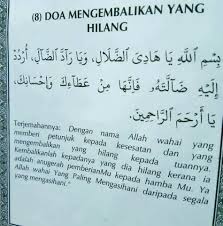 (8) DOA MENGEMBALIKAN YANG
HILANG
بِسْمِ اللَّهِ يَا هَادِيَ الضَّلَالِ، وَيَا رَآدَّ الضَّآلِ، أُرْدُدْ
إِلَيْهِ ضَالَّتَهُ فَإِنَّهَا مِنْ عَطَاءِكَ وَإِحْسَانِكَ،
يَا أَرْحَمَ الرَّاحِمِيْنَ.
Terjemahannya: Dengan nama Allah wahai yang
memberi petunjuk kepada kesesatan dan yang
mengembalikan yang hilang kepada tuannya.
Kembalikanlah kepadanya yang dia hilang kerana ia
adalah anugerah pemberianMu kepada hamba Mu. Ya
Allah wahai Yang Paling Mengasihani daripada segala
yang mengasihani."